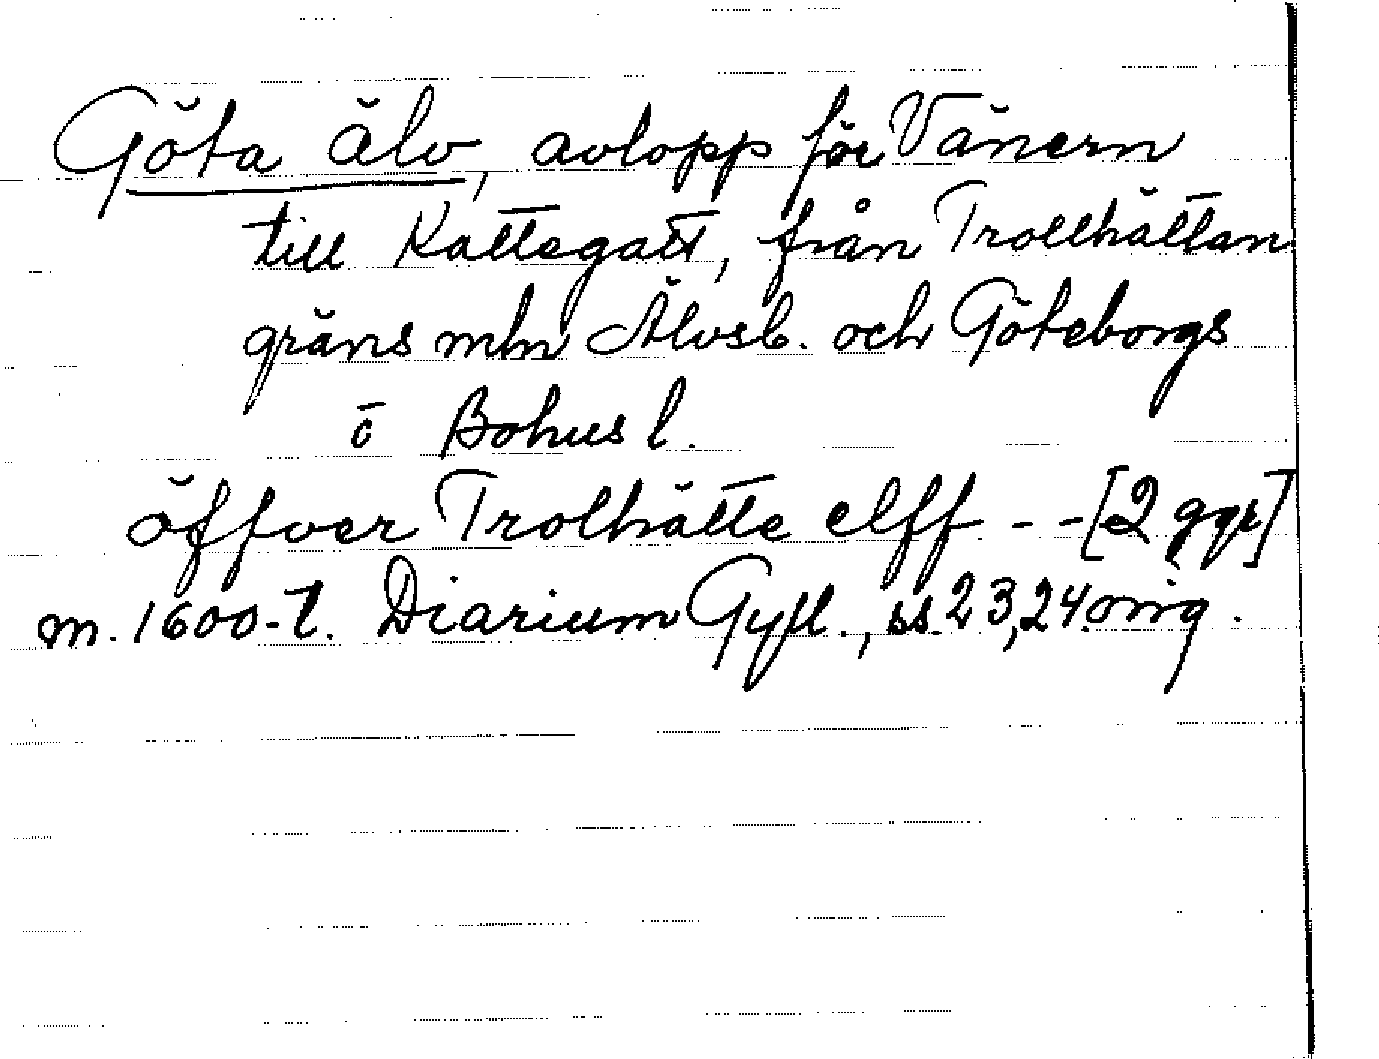 Göta älv, avlopp för Vänern
till Kattegatt, från Trollhättan
gräns mln Älvsb. och Göteborgs
o Bohus l.
öffver Trolhätte elff - - [2 ggr]
m. 1600-t. Diarium Gyll., ss. 23, 24. omg.